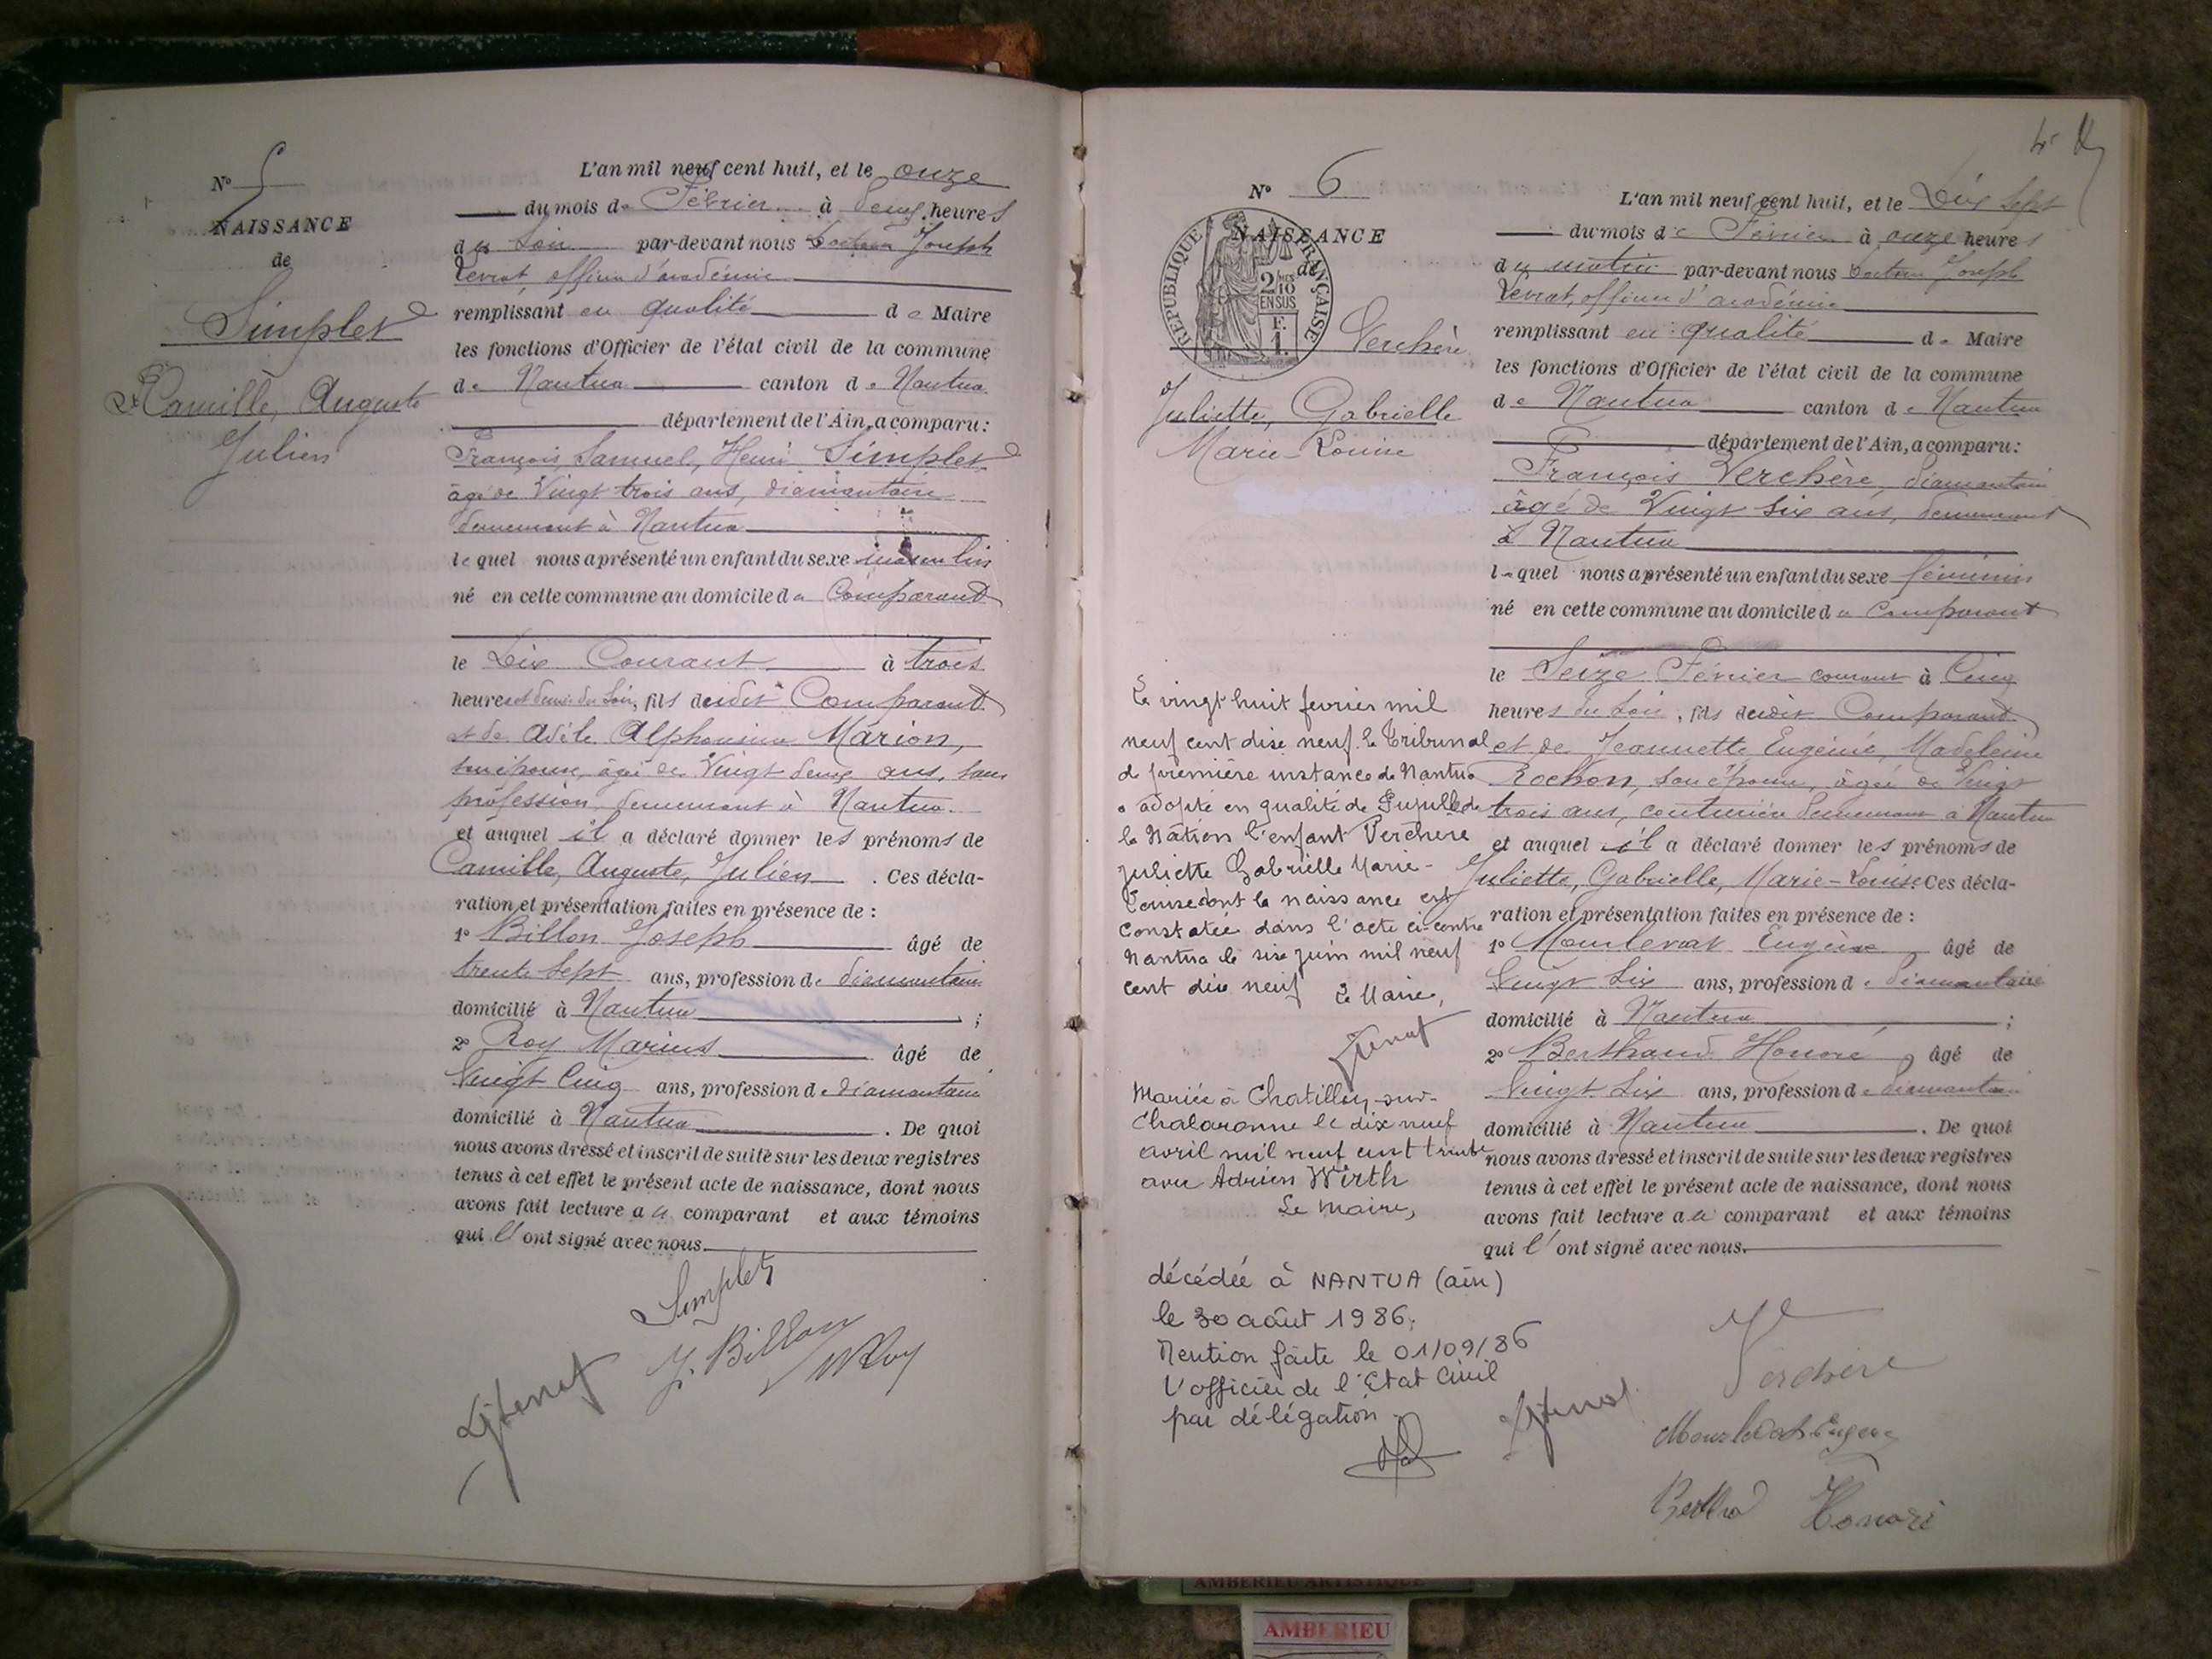 N° 5
NAISSANCE
de
Simplet
Camille, Auguste
Julien
L'an mil neuf cent huit, et le onze
du mois de Février à deux heures
du soir par-devant nous Docteur Joseph
Levrat, officier d'académie
remplissant en qualité de Maire
les fonctions d'Officier de l'état civil de la commune
de Nantua canton de Nantua
département de l'Ain, a comparu:
François, Samuel, Henri Simplet
âgé de Vingt trois ans, diamantaire
demeurant à Nantua
lequel nous a présenté un enfant du sexe masculin
né en cette commune au domicile du Comparant
le Dix Courant à trois
heures et demie du soir, fils dudit Comparant
et de Adèle Alphonsine Marion,
son épouse, âgée de Vingt deux ans, sans
profession, demeurant à Nantua.
et auquel il a déclaré donner les prénoms de
Camille, Auguste, Julien. Ces décla-
ration et présentation faites en présence de :
1° Billon Joseph âgé de
trente sept ans, profession de diamantaire
domicilié à Nantua ;
2° Roy Marius âgé de
Vingt Cinq ans, profession de diamantaire
domicilié à Nantua. De quoi
nous avons dressé et inscrit de suite sur les deux registres
tenus à cet effet le présent acte de naissance, dont nous
avons fait lecture au comparant et aux témoins
qui l'ont signé avec nous.
Simplet
J. Billon
M Roy
N° 6
NAISSANCE
de
RÉPUBLIQUE FRANÇAISE
2/10
EN SUS
F.
1.
Verchère
Juliette, Gabrielle
Marie-Louise
L'an mil neuf cent huit, et le Dix sept
du mois de Février à onze heures
du matin par-devant nous Docteur Joseph
Levrat, officier d'académie
remplissant en qualité de Maire
les fonctions d'Officier de l'état civil de la commune
de Nantua canton de Nantua
département de l'Ain, a comparu:
François Verchère, diamantaire
âgé de Vingt six ans, demeurant
à Nantua
lequel nous a présenté un enfant du sexe féminin
né en cette commune au domicile du Comparant
le Seize Février courant à Cinq
heures du soir, fils dudit Comparant
et de Jeannette, Eugénie, Madeleine
Rochon, son épouse, âgée de Vingt
trois ans, couturière demeurant à Nantua
et auquel il a déclaré donner les prénoms de
Juliette, Gabrielle, Marie-Louise Ces décla-
ration et présentation faites en présence de :
1° Eugène, âgé de
Vingt six ans, profession de diamantaire
domicilié à Nantua ;
2° Berthaud Honoré, âgé de
Vingt six ans, profession de diamantaire
domicilié à Nantua. De quoi
nous avons dressé et inscrit de suite sur les deux registres
tenus à cet effet le présent acte de naissance, dont nous
avons fait lecture au comparant et aux témoins
qui l'ont signé avec nous.
Le vingt huit février mil
neuf cent dixe neuf le Tribunal
de première instance de Nantua
a adopté en qualité de Pupille de
la Nation l'enfant Verchère
Juliette Gabrielle Marie-
Louise dont la naissance est
constatée dans l'acte ci-contre
Nantua le sixe juin mil neuf
cent dixe neuf Le Maire,
Mariée à Chatillon-sur-
Chalaronne le dix neuf
avril mil neuf cent trente
avec Adrien Wirth
Le Maire,
décédée à NANTUA (ain)
le 30 août 1986.
Mention faite le 01/09/86
L'officier de l'Etat Civil
par délégation
Verchère
Eugène
Honoré
AMBERIEU ARTISTIQUE
AMBERIEU